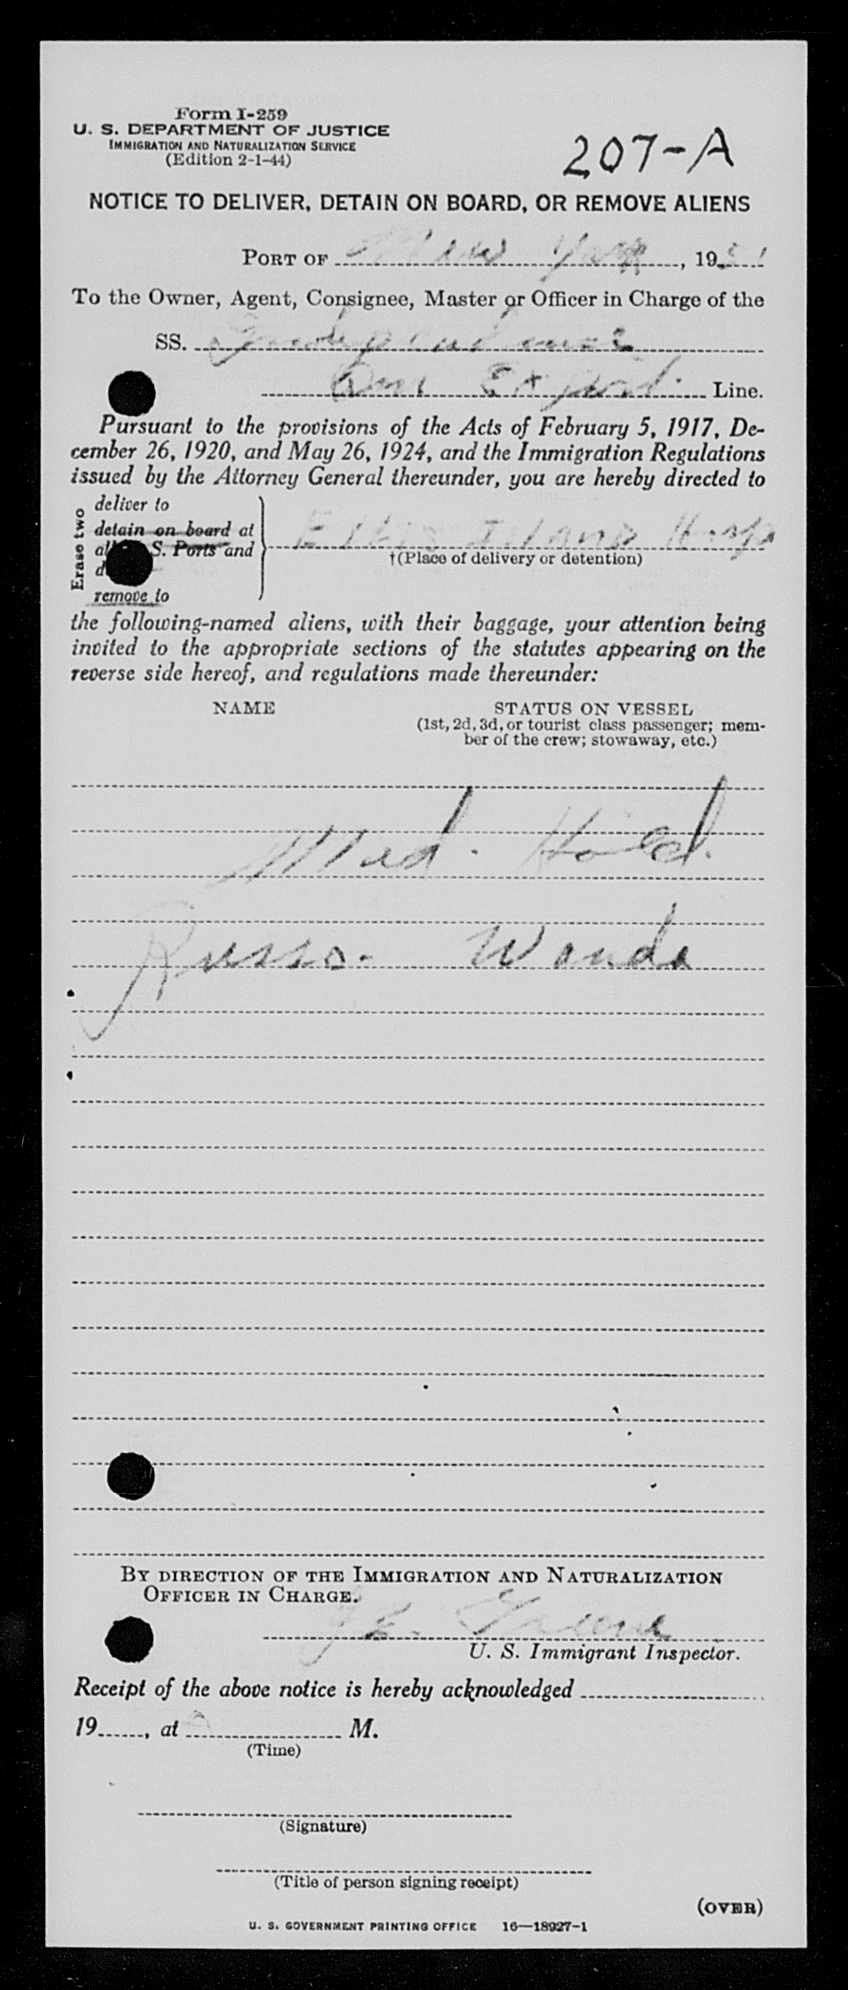 Form I-259
U. S. DEPARTMENT OF JUSTICE
IMMIGRATION AND NATURALIZATION SERVICE
(Edition 2-1-44)
207-A
NOTICE TO DELIVER, DETAIN ON BOARD, OR REMOVE ALIENS
PORT OF New York, 1951
To the Owner, Agent, Consignee, Master or Officer in Charge of the
SS. Independence
Am Export Line.
Pursuant to the provisions of the Acts of February 5, 1917, De-
cember 26, 1920, and May 26, 1924, and the Immigration Regulations
issued by the Attorney General thereunder, you are hereby directed to
Erase two
deliver to
detain on board at
S. Ports and
remove to
Ellis Island Hosp
†(Place of delivery or detention)
the following-named aliens, with their baggage, your attention being
invited to the appropriate sections of the statutes appearing on the
reverse side hereof, and regulations made thereunder:
NAME STATUS ON VESSEL
(1st, 2d, 3d, or tourist class passenger; mem-
ber of the crew; stowaway, etc.)
Med. Hold.
Russo. Wanda
BY DIRECTION OF THE IMMIGRATION AND NATURALIZATION
OFFICER IN CHARGE.
Greene
U. S. Immigrant Inspector.
Receipt of the above notice is hereby acknowledged
19, at M.
(Time)
(Signature)
(Title of person signing receipt)
(OVER)
U. S. GOVERNMENT PRINTING OFFICE 16—18927-1